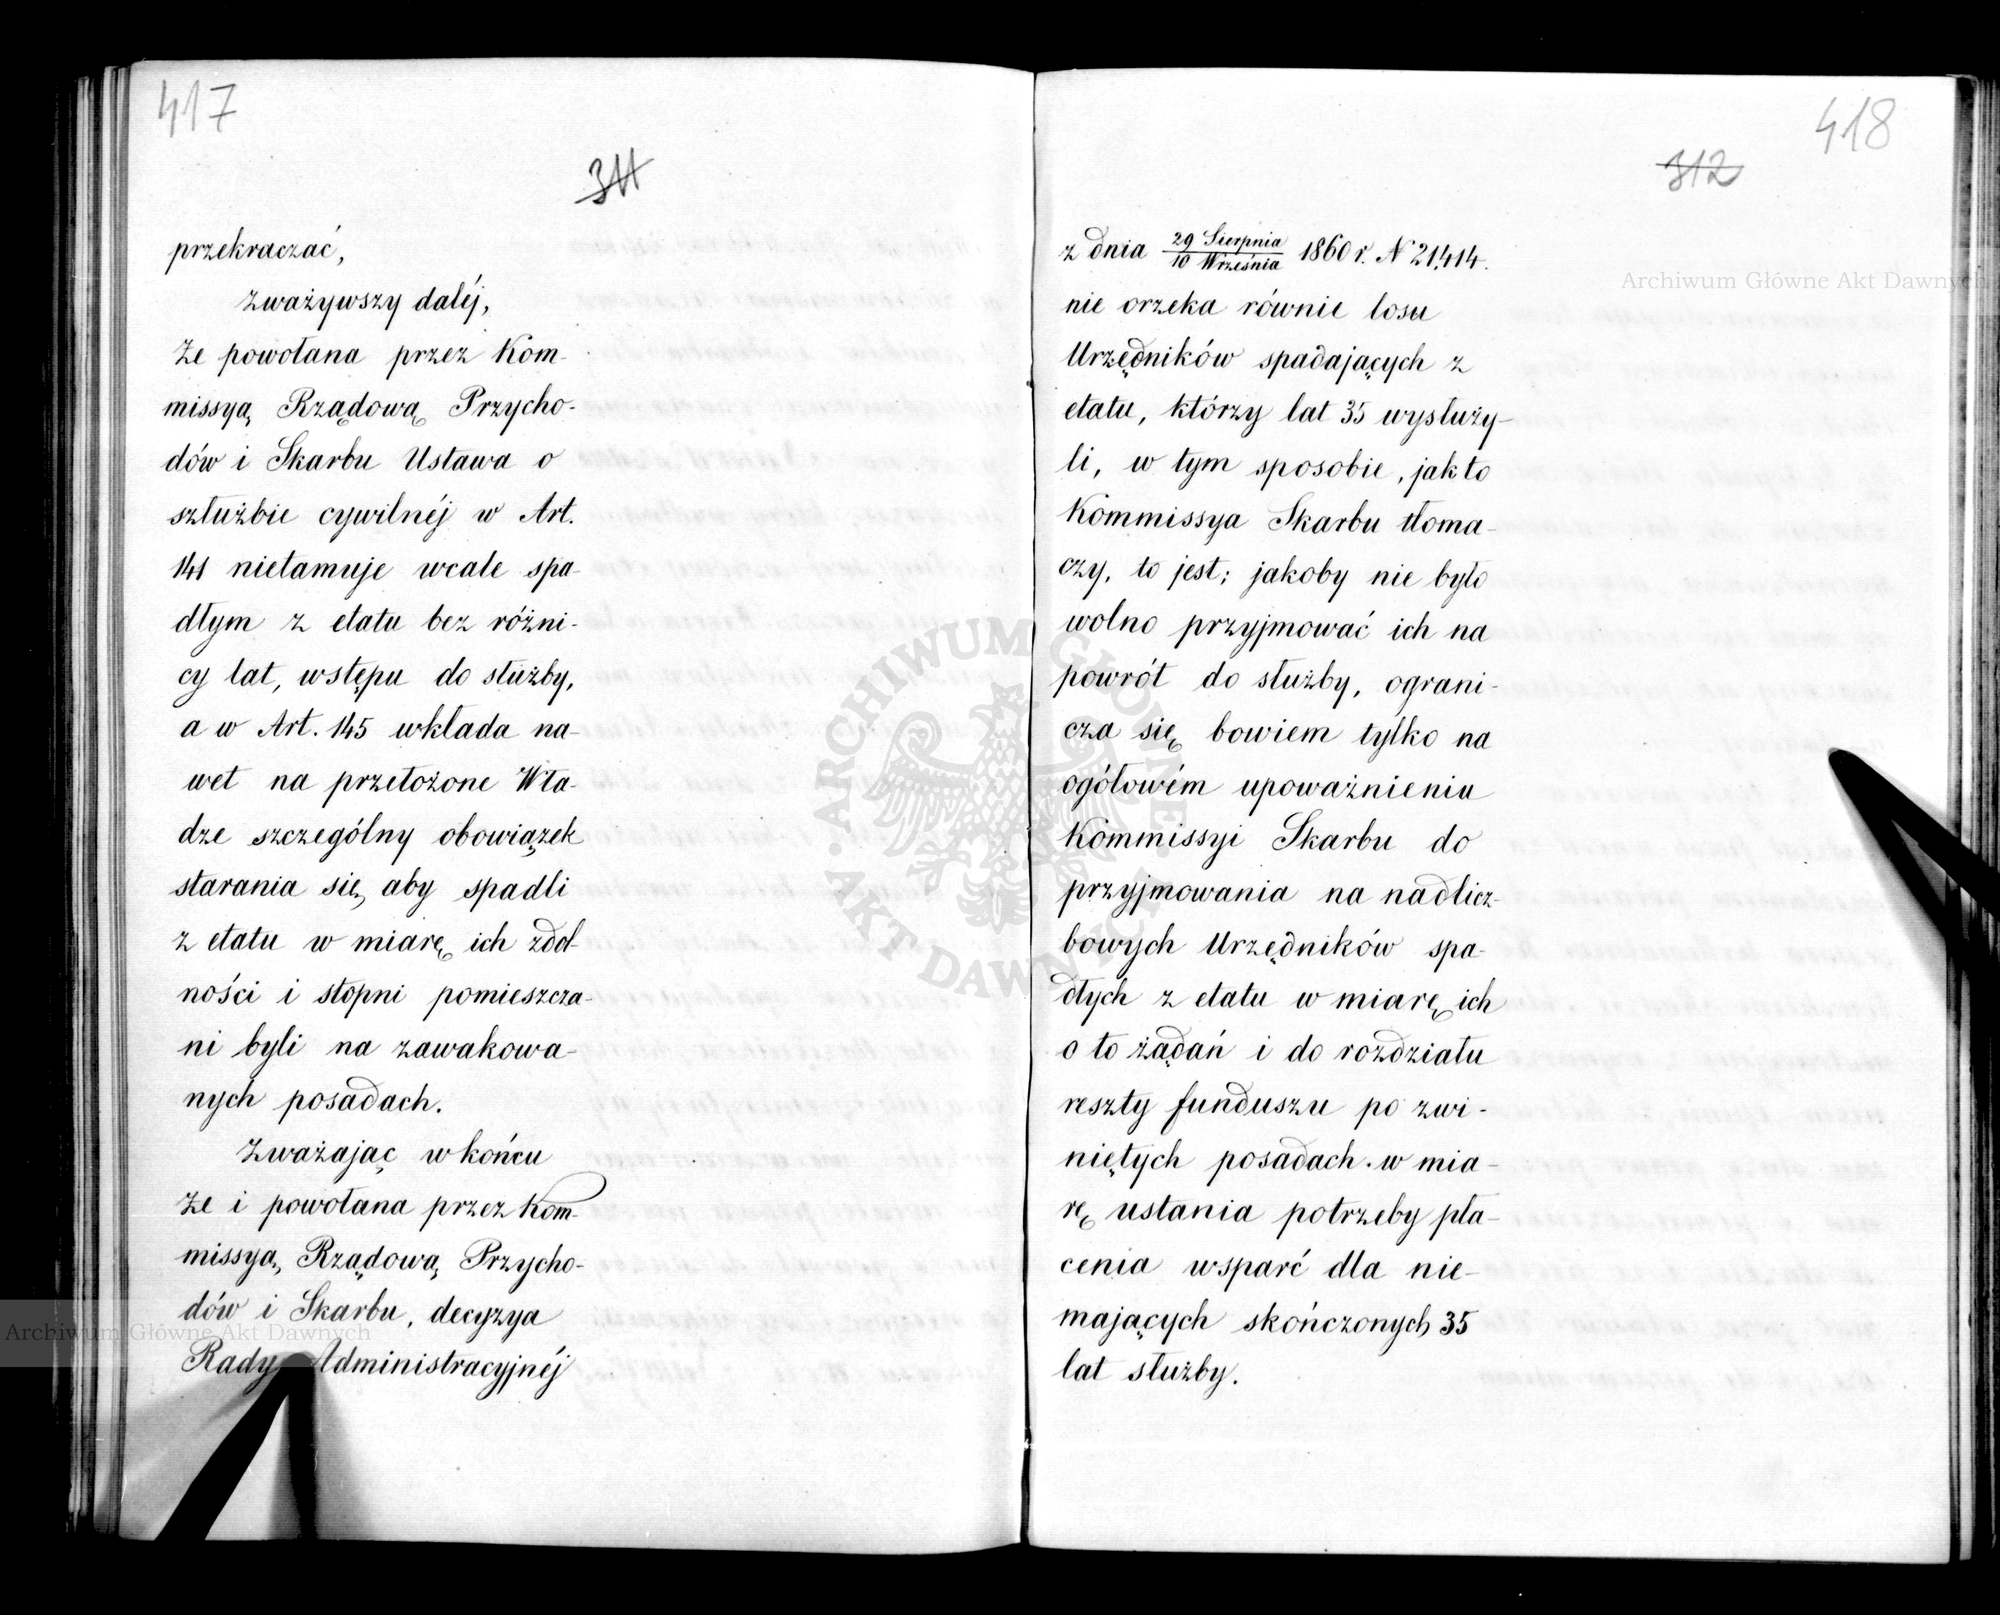 417
311
przekraczać,
Zważywszy daléj,
Że powołana przez Kom-
missyą Rządową Przycho-
dów i Skarbu Ustawa o
służbie cywilnéj w Art.
141 nietamuje wcale spa-
dłym z etatu bez różni-
cy lat, wstępu do służby,
a w Art. 145 wkłada na-
wet na przełożone Wła-
dze szczególny obowiązek
starania się, aby spadli
z etatu w miarę ich zdol-
ności i stopni pomieszcza-
ni byli na zawakowa-
nych posadach.
Zważając w końcu
Że i powołana przez Kom-
missyą Rządową Przycho-
dów i Skarbu, decyzya
Rady Administracyjnéj
418
312
z dnia 29 Sierpnia/10 Września 1860 r. N 21,414.
nie orzeka równie losu
Urzędników spadających z
etatu, którzy lat 35 wysłuży-
li, w tym sposobie, jak to
Kommissya Skarbu tłoma-
czy, to jest; jakoby nie było
wolno przyjmować ich na
powrót do służby, ograni-
cza się bowiem tylko na
ogółowém upoważnieniu
Kommissyi Skarbu do
przyjmowania na nadlicz-
bowych Urzędników spa-
dłych z etatu w miarę ich
o to żądań i do rozdziału
reszty funduszu po zwi-
niętych posadach w mia-
rę ustania potrzeby pła-
cenia wsparć dla nie-
mających skończonych 35
lat służby.
Archiwum Główne Akt Dawnych
Archiwum Główne Akt Dawnych
ARCHIWUM GŁÓWNE AKT DAWNYCH